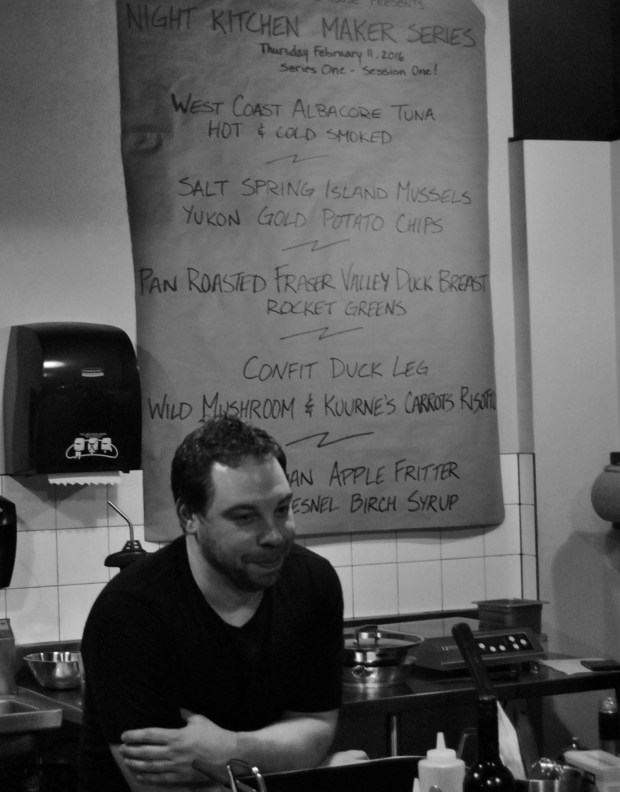 PRESENTS
NIGHT KITCHEN MAKER SERIES
Thursday February 11, 2016
Series One - Session One!
WEST COAST ALBACORE TUNA
HOT & COLD SMOKED
SALT SPRING ISLAND MUSSELS
YUKON GOLD POTATO CHIPS
PAN ROASTED FRASER VALLEY DUCK BREAST
ROCKET GREENS
CONFIT DUCK LEG
WILD MUSHROOM & KUURNE'S CARROTS RISOTTO
AN APPLE FRITTER
ESNEL BIRCH SYRUP